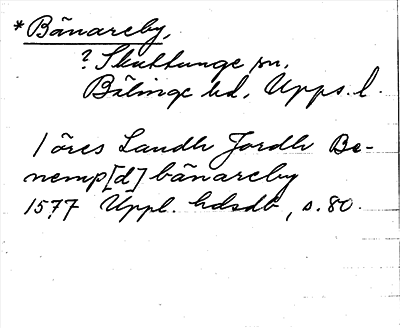 * Bänareby,
? Skuttunge sn,
Bälinge hd, Upps. l.
1 öres Landh Jordh Be-
nemp[d] bänareby
1577 Uppl. hdsdb, s. 80.